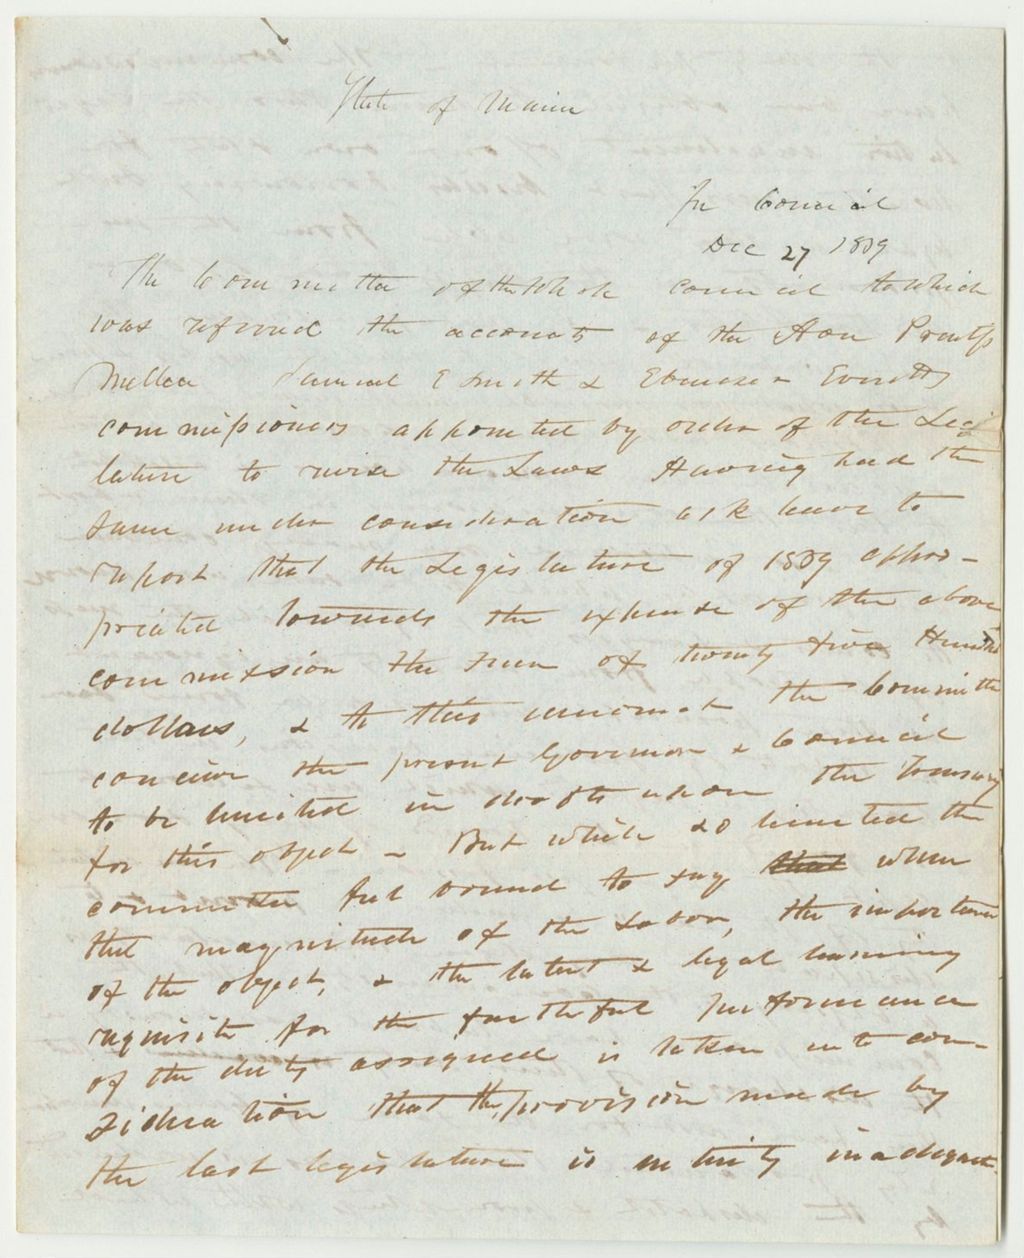 State of Maine
In Council
Dec 27 1839
The Committee of the Whole Council to which
was referred the accounts of the Hon Prentiss
Mellen Samuel E Smith & Ebenezer Everett
commissioners appointed by order of the Legis
lature to revise the Laws Having had the
same under consideration ask leave to
report that the Legislature of 1839 appro-
priated towards the expense of the above
commission the sum of twenty five Hundred
dollars, & to this amount the Committee
conceive the present Governor & Council
to be limited in drafts upon the Treasury
for this object - But while so limited the
committee feel bound to say that when
the magnitude of the Labor, the importance
of the object, & the talent & legal learning
requisite for the faithful performance
of the duty assigned is taken into con-
sideration that the provision made by
the last legislature is entirely inadequate